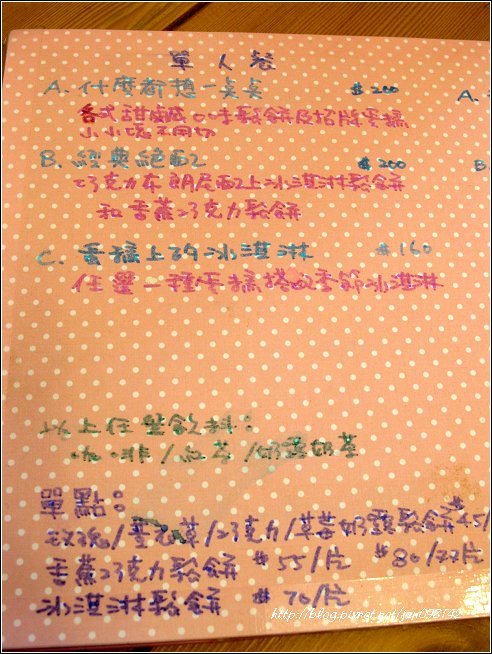 單人餐
A. 什麼都想一點點 $200 A.
各式甜鹹口味鬆餅及招牌蛋糕
小小塊不用切
B. 經典絕配 $200 B.
巧克力布朗尼配上冰淇淋鬆餅
和香蕉巧克力鬆餅
C. 蛋糕上的冰淇淋 $160
任選一種蛋糕搭配季節冰淇淋
以上任選飲料:
咖啡/紅茶/奶茶
單點:
玫瑰/薰衣草/巧克力/草莓 奶露鬆餅 $45/
香蕉巧克力鬆餅 $55/片 $80/2片
冰淇淋鬆餅 $70/片